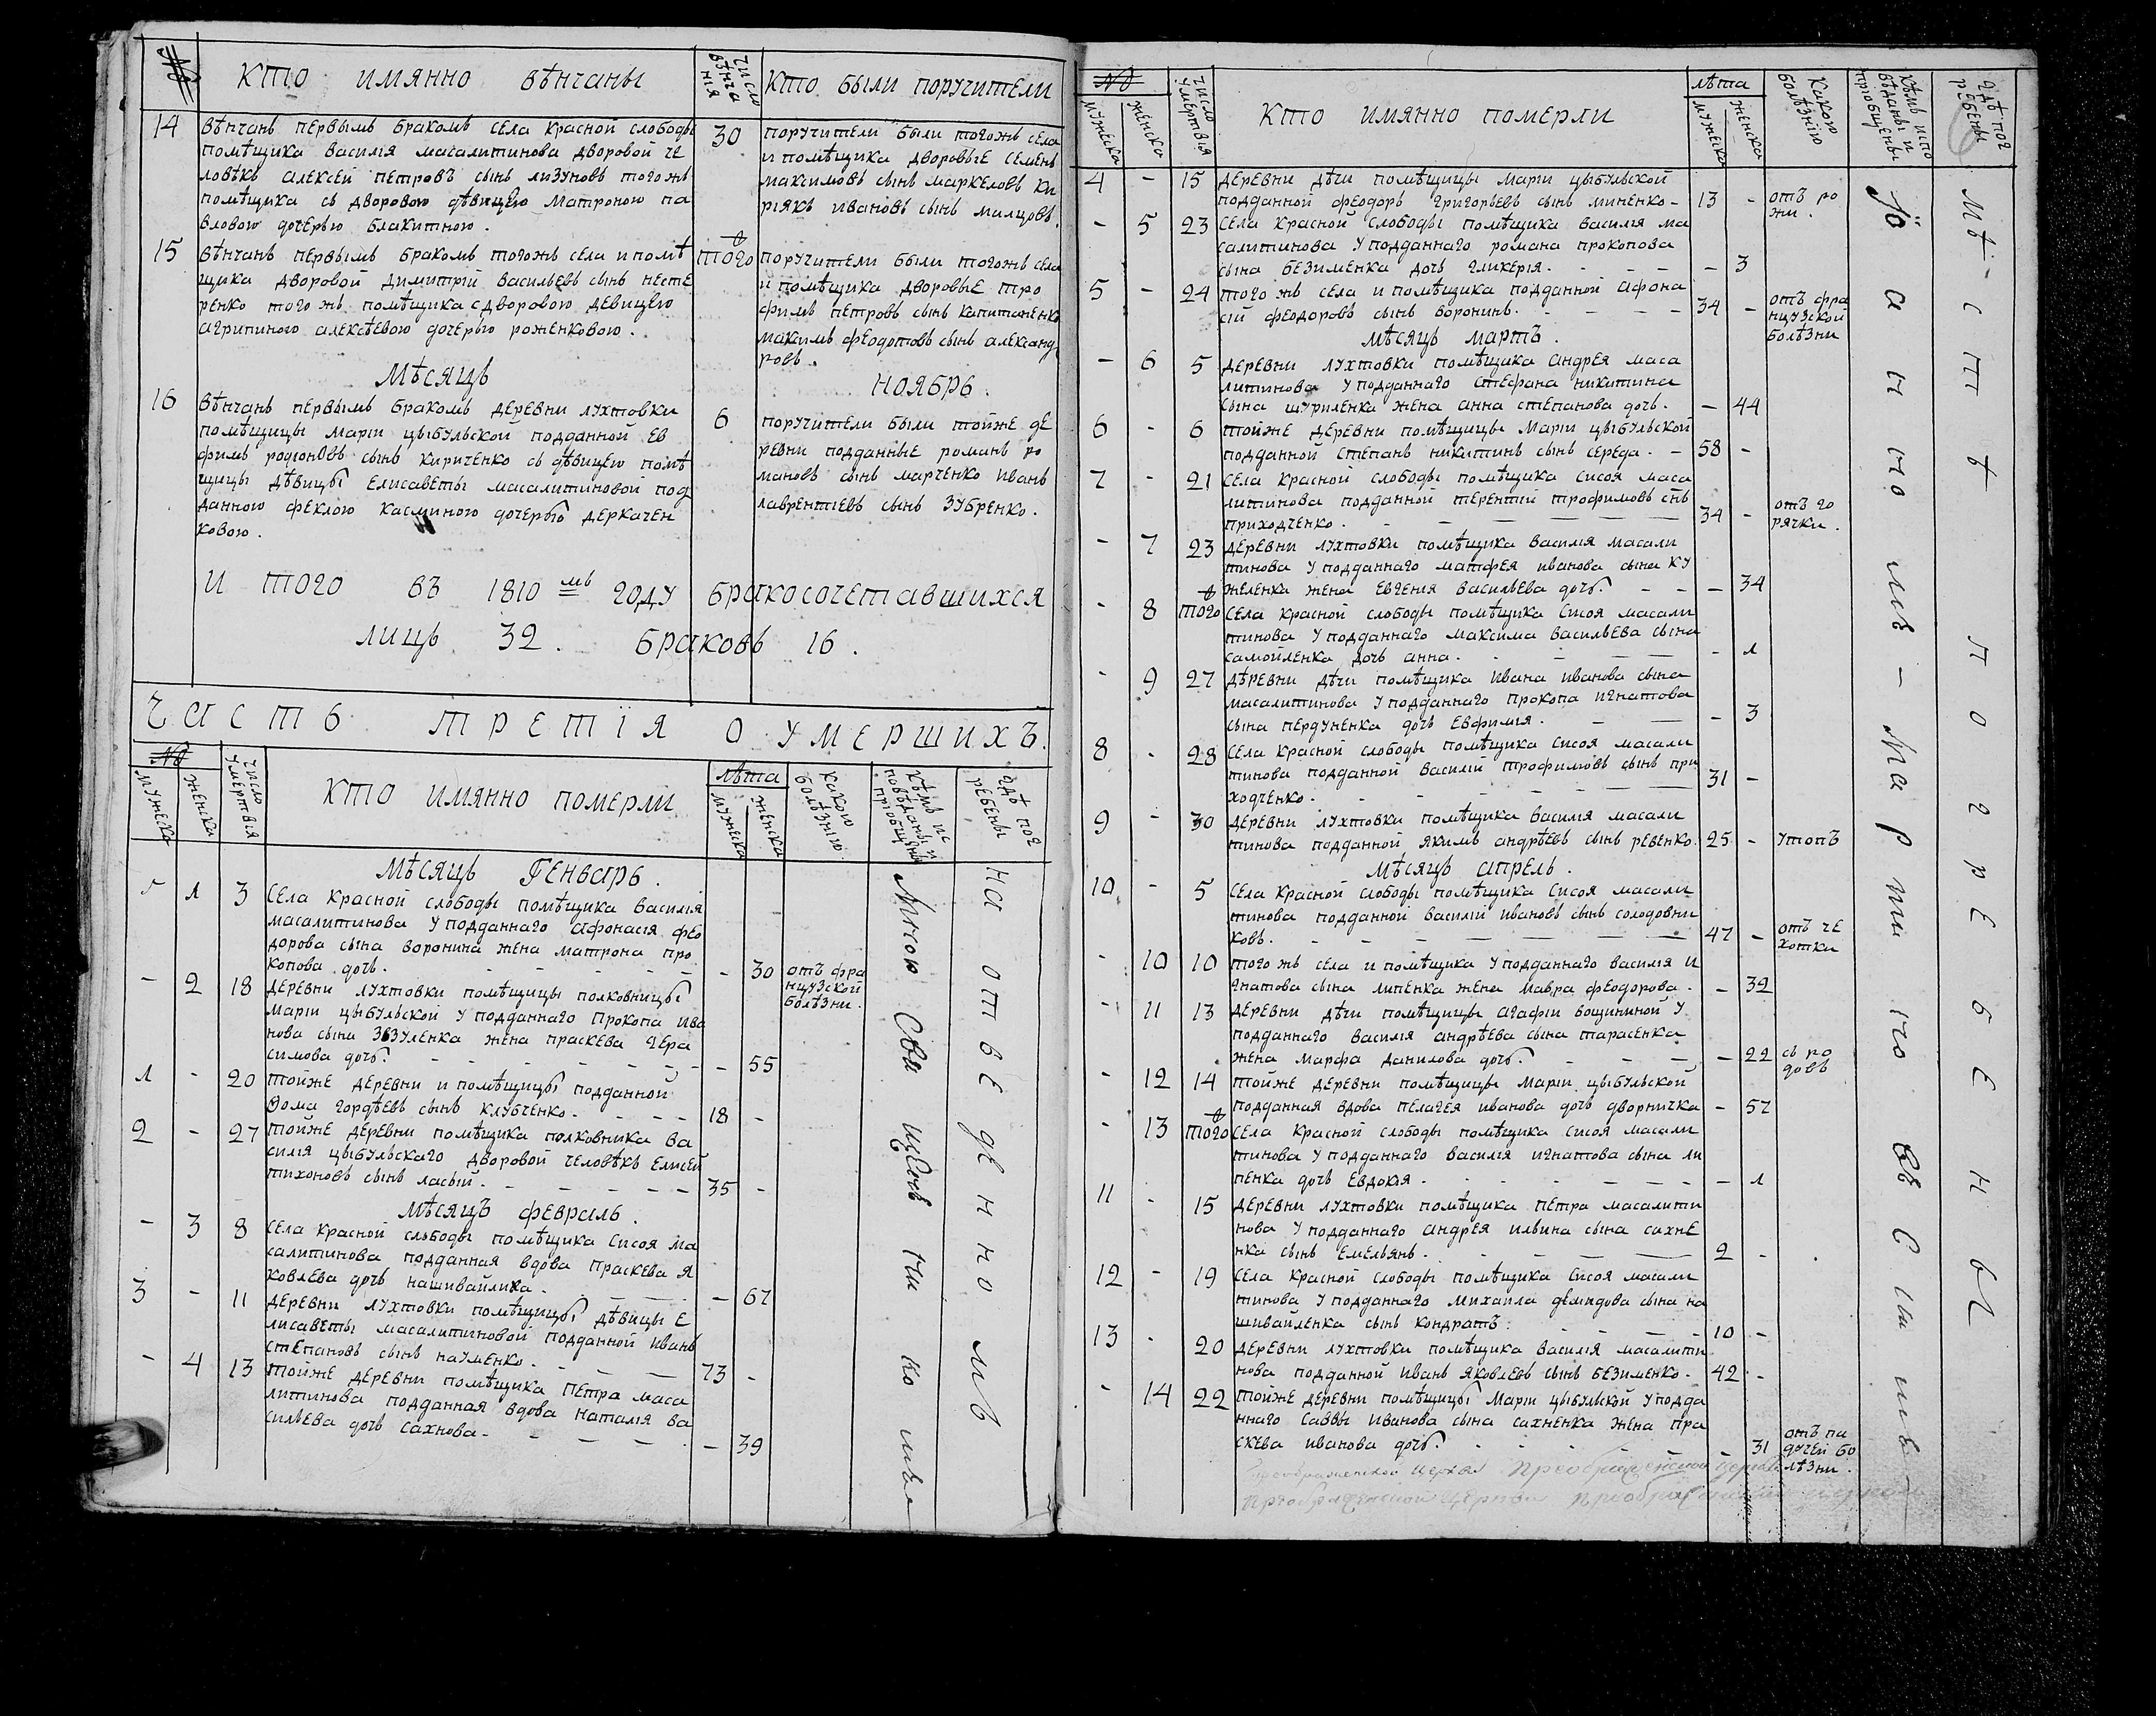 №
кто имянно вѣнчаны
число вѣнча нія
кто были поручители
14
вѣнчанъ первымъ бракомъ села красной слободы
помѣщика василія масалитинова дворовой че
ловѣкъ алексей петровъ сынъ лизуновъ тогожъ
помѣщика съ дворовою дѣвицею матроною па
вловою дочерью блакитною.
30
поручители были тогожъ села
и помѣщика дворовые семенъ
максимовъ сынъ маркеловъ ки
ріякъ ивановъ сынъ малцовъ.
15
вѣнчанъ первымъ бракомъ тогожъ села и помѣ
щика дворовой димитрій васильевъ сынъ несте
ренко тогожъ помѣщика с дворовою девицею
агрипиною алексѣевою дочерью роженковою.
того
поручители были тогожъ села
и помѣщика дворовые тро
фимъ петровъ сынъ капитаненко
максимъ феодотовъ сынъ александ
ровъ.
Мѣсяцъ ноябрь.
16
вѣнчанъ первымъ бракомъ деревни лухтовки
помѣщицы маріи цыбульской подданной ев
фимъ родіоновъ сынъ кириченко съ дѣвицею помѣ
щицы дѣвицы елисаветы масалитиновой под
данною феклою касминою дочерью деркачен
ковою.
6
поручители были тойже де
ревни подданные романъ ро
мановъ сынъ марченко иванъ
лаврентіевъ сынъ зубренко.
и того въ 1810мъ году бракосочетавшихся
лицъ 32. браковъ 16.
Часть третія о умершихъ.
№
мужеска
женска
число умертвія
кто имянно помермли
лѣта
мужеска
женска
какою болѣзнію
кѣмъ ис повѣданы и пріобщены
гдѣ пог ребены
мѣсяцъ генварь.
- 1 3
села красной слободы помѣщика василія
масалитинова у подданнаго афонасія фео
дорова сына воронина жена матрона про
копова дочь. - 30 отъ фра
нцузской
болѣзни.
- 2 18
деревни лухтовки помѣщицы полковницы
маріи цыбульской у подданнаго прокопа ива
нова сына зозуленка жена праскева гера
симова дочь. - 55
1 - 20
тойже деревни и помѣщицы подданной
фома гордѣевъ сынъ клубченко. 18 -
2 - 27
тойже деревни помѣщика полковника ва
силія цыбульскаго дворовой человѣкъ елисей
тихоновъ сынъ ласый. 35 -
мѣсяцъ февраль.
- 3 8
села красной слободы помѣщика сисоя ма
салитинова подданная вдова праскева я
ковлева дочь нашивайлиха. - 67
3 - 11
деревни лухтовки помѣщицы дѣвицы е
лисаветы масалитиновой подданной иванъ
степановъ сынъ науменко. 73 -
- 4 13
тойже деревни помѣщика петра маса
литинова подданная вдова наталія ва
сильева дочь сахнова. - 39
Мною Священникомъ
на отведенномъ
№
мужеска
женска
число умертвія
кто имянно померли
лѣта
мужеска
женска
какою болѣзнію
кѣмъ испо вѣданы и пріобщены
гдѣ пог ребены
4 - 15
деревни дѣчи помѣщицы маріи цыбульской
подданной феодоръ григорьевъ сынъ миненко - 13 - отъ ро
жи.
- 5 23
села красной слободы помѣщика василія ма
салитинова у подданнаго романа прокопова
сына безименка дочь гликерія. - 3
5 - 24
того жъ села и помѣщика подданной афона
сій феодоровъ сынъ воронинъ. 34 - отъ фра
нцузской
болѣзни
мѣсяцъ мартъ.
- 6 5
деревни лухтовки помѣщика андрея маса
литинова у подданнаго стефана никитина
сына шуриленка жена анна степанова дочь. - 44
6 - 6
тойже деревни помѣщицы маріи цыбульской
подданной степанъ никитинъ сынъ середа. - 58 -
7 - 21
села красной слободы помѣщика сисоя маса
литинова подданной терентій трофимовъ снъ
приходченко. 34 - отъ го
рячки.
- 7 23
деревни лухтовки помѣщика василія масали
тинова у подданнаго матфея иванова сына ку
желенка жена евгенія васильева дочь. - 34
- 8 того
села красной слободы помѣщика сисоя масали
тинова у подданнаго максима васильева сына
самойленка дочь анна. - 1
- 9 27
деревни дѣчи помѣщика ивана иванова сына
масалитинова у подданнаго прокопа игнатова
сына пердуненка дочь евфимія. - 3
8 - 28
села красной слободы помѣщика сисоя масали
тинова подданной василій трофимовъ сынъ при
ходченко. 31 -
9 - 30
деревни лухтовки помѣщика василія масали
тинова подданной якимъ андрѣевъ сынъ ревенко. 25 - утопъ
мѣсяцъ апрель.
10 - 5
села красной слободы помѣщика сисоя масали
тинова подданной василій ивановъ сынъ солодовни
ковъ. 47 - отъ че
хотки
- 10 10
того жъ села и помѣщика у подданнаго василія и
гнатова сына липенка жена мавра феодорова. - 32
- 11 13
деревни дѣчи помѣщицы агафіи вощининой у
подданнаго василія андрѣева сына тарасенка
жена марфа данилова дочь. - 22 съ ро
довъ
- 12 14
тойже деревни помѣщицы маріи цыбульской
подданная вдова пелагея иванова дочь дворничка - 57
- 13 того
села красной слободы помѣщика сисоя масали
тинова у подданнаго василія игнатова сына ли
пенка дочь евдокія. - 1
11 - 15
деревни лухтовки помѣщика петра масалити
нова у подданнаго андрея ильина сына сахне
нка сынъ емельянъ. 2 -
12 - 19
села красной слободы помѣщика сисоя масали
тинова у подданнаго михаила демидова сына на
шивайленка сынъ кондратъ. 10 -
13 - 20
деревни лухтовки помѣщика василія масалити
нова подданной иванъ яковлевъ сынъ безименко. 42 -
- 14 22
тойже деревни помѣщицы маріи цыбульской у подда
ннаго саввы иванова сына сахненка жена пра
скева иванова дочь. - 31 отъ па
дучей бо
лѣзни.
Іоанномъ - Мартиновскимъ
мѣстѣ погребены
преображенской церкви преображенской церкви
преображенской церкви преображенской церкви